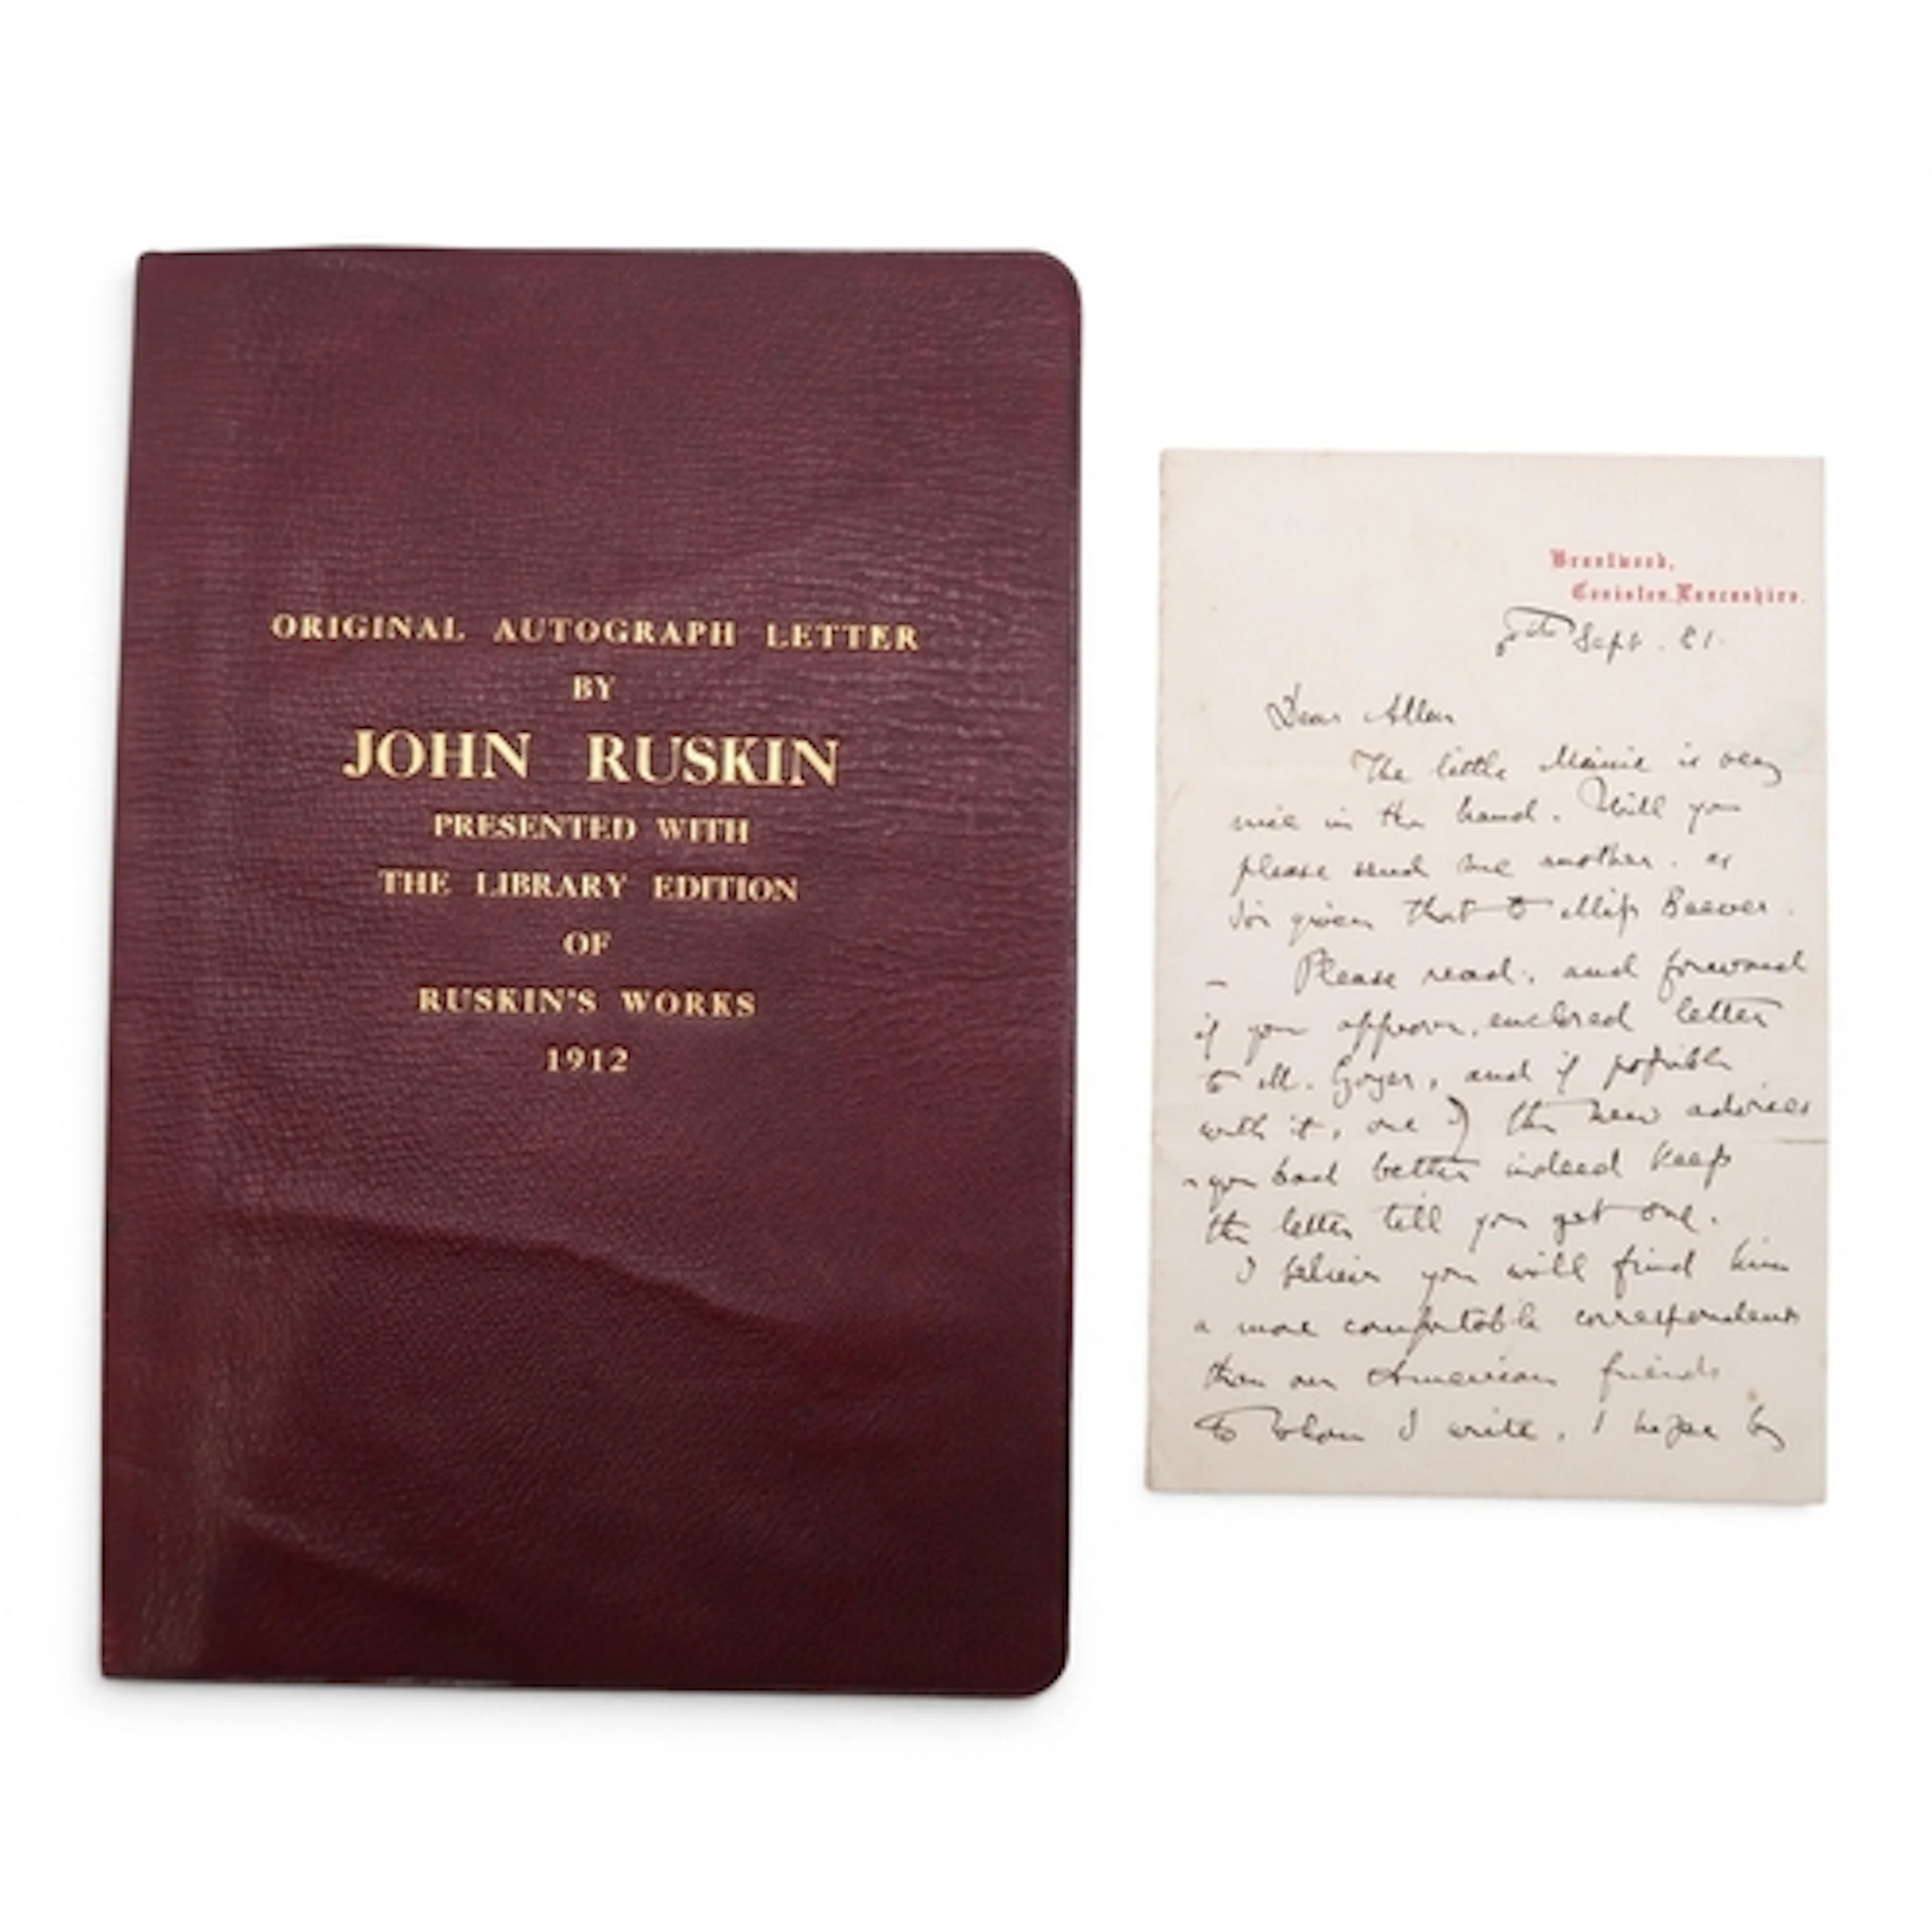 ORIGINAL AUTOGRAPH LETTER
BY
JOHN RUSKIN
PRESENTED WITH
THE LIBRARY EDITION
OF
RUSKIN'S WORKS
1912
Brantwood,
Coniston, Lancashire.
Sept. 81.
Dear Allen
The little is very
nice in the hand. Will you
please send me another. as
I've given that to Miss Beever.
– Please read, and forward
if you approve, enclosed letter
to M. , and if possible
with it, one of the new
you had better indeed keep
the letter till you get one.
I believe you will find him
a more comfortable correspondent
than our American friends
to whom I write, I hope by